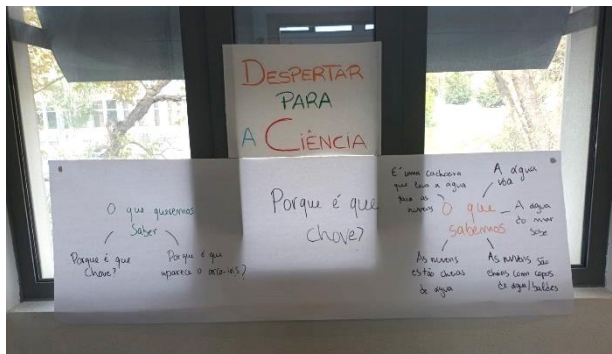 DESPERTAR
PARA
A CIÊNCIA
O que queremos
Saber
Porque é que
chove?
Porque é que
aparece o arco-íris?
Porque é que
chove?
O que
sabemos
É uma cachoeira
que leva a água
para as
nuvens
A água
voa
A água
do mar
sobe
As nuvens
estão cheias
de água
As nuvens são
cheias com copos
de água/baldes